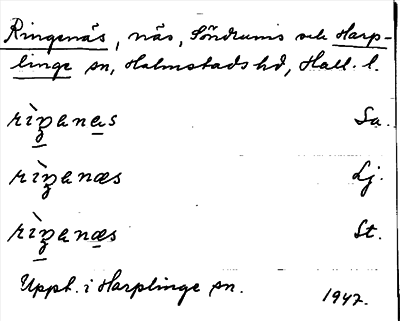 Ringenäs, näs, Söndrums och Harp-
linge sn, Halmstads hd, Hall. l.
rìŋenes Sa.
rìŋenæs Lj.
rìŋenæs St.
Uppt. i Harplinge sn.
1947.